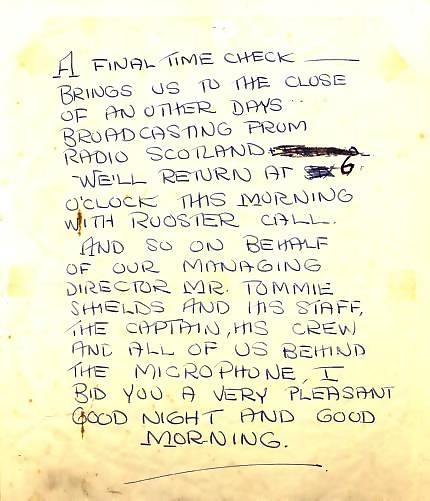 A FINAL TIME CHECK ——
BRINGS US TO THE CLOSE
OF AN OTHER DAYS
BROADCASTING FROM
RADIO SCOTLAND
WE'LL RETURN AT 6
O'CLOCK THIS MORNING
WITH ROOSTER CALL.
AND SO ON BEHALF
OF OUR MANAGING
DIRECTOR MR. TOMMIE
SHIELDS AND HIS STAFF,
THE CAPTAIN, HIS CREW
AND ALL OF US BEHIND
THE MICROPHONE, I
BID YOU A VERY PLEASANT
GOOD NIGHT AND GOOD
MORNING.